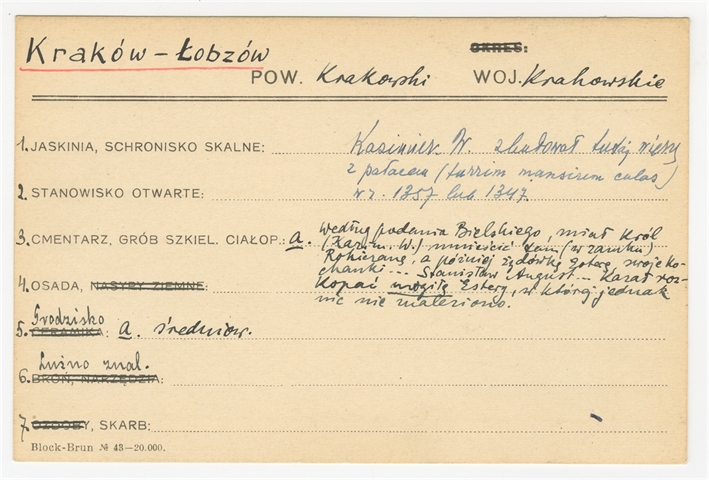 Kraków – Łobzów
OKRES:
POW. Krakowski WOJ. Krakowskie
1. JASKINIA, SCHRONISKO SKALNE: Kazimierz W. zbudował tutaj wieżę
z pałacem (turrim mansirem culas)
2. STANOWISKO OTWARTE: w r. 1357 lub 1347.
3. CMENTARZ, GRÓB SZKIEL. CIAŁOP.: a. Według podania Bielskiego, miał Król
(Kazim. W.) umieścić tam (w zamku)
Rokiczanę, a później żydówkę Esterę swoje ko-
chanki... Stanisław August... Kazał roz-
4. OSADA, NASYPY ZIEMNE: kopać mogiłę Estery, w której jednak
nic nie znaleziono.
Grodzisko
5. CERAMIKA: a. średniow.
Luźno znal.
6. BROŃ, NARZĘDZIA:
7. OZDOBY, SKARB:
Block-Brun № 43—20.000.